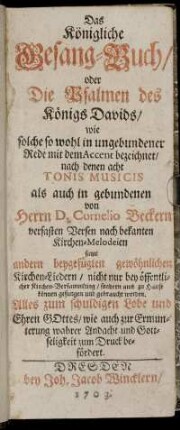 Das
Königliche
Gesang-Buch/
oder
Die Psalmen des
Königs Davids/
wie
solche so wohl in ungebundener
Rede mit dem Accent bezeichnet/
nach denen acht
TONIS MUSICIS
als auch in gebundenen
von
Herrn D. Cornelio Beckern
verfasten Versen nach bekanten
Kirchen-Melodeien
samt
andern beygefügten gewöhnlichen
Kirchen-Liedern/ nicht nur bey öffentli-
cher Kirchen-Versammlung/ sondern auch zu Hause
können gesungen und gebraucht werden,
Alles zum schuldigen Lobe und
Ehren GOttes/ wie auch zur Ermun-
terung wahrer Andacht und Gott-
seligkeit zum Druck be-
fördert.
DRESDEN
bey Joh. Jacob Wincklern/
1703.